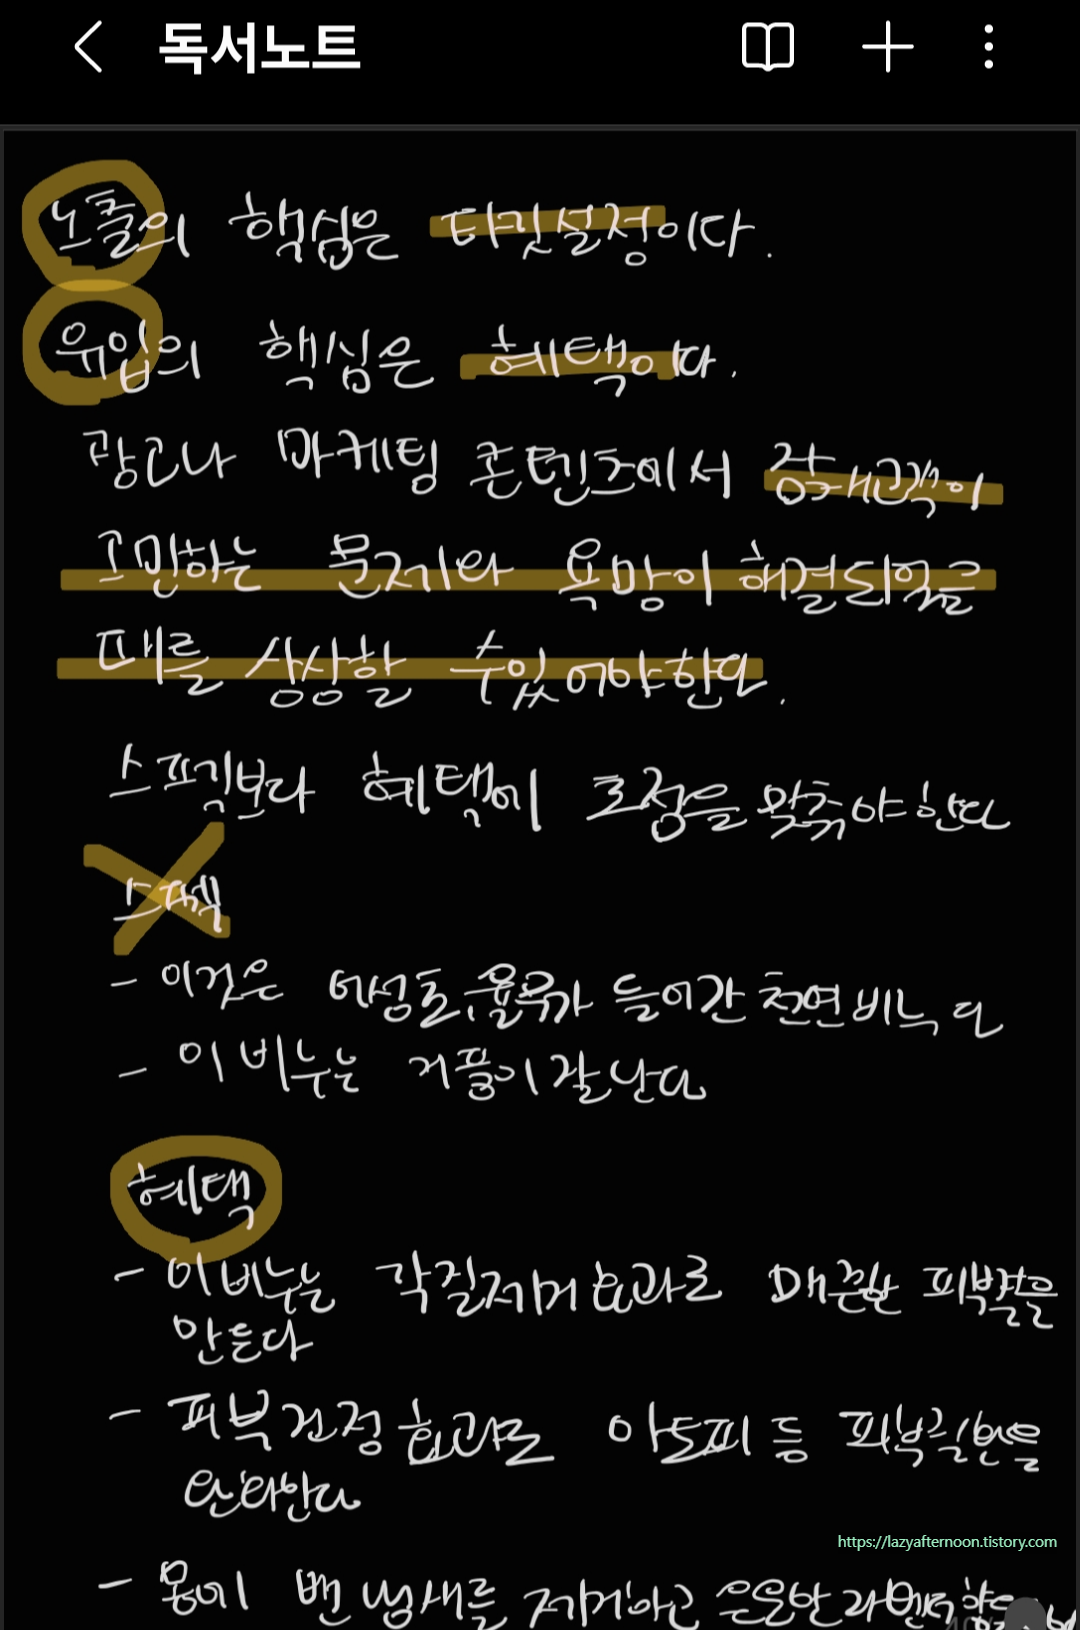 독서노트
노출의 핵심은 타킷설정이다.
유입의 핵심은 혜택이다.
광고나 마케팅 콘텐츠에서 잠재고객이
고민하는 문제와 욕망이 해결되었을
때를 상상할 수있어야한다.
스펙보다 혜택에 초점을 맞춰야한다
스펙
- 이것은 어성초, 율무가 들어간 천연비누다
- 이 비누는 거품이 잘난다
혜택
- 이 비누는 각질제거 효과로 매끈한 피부결을
만든다
- 피부진정 효과로 아토피 등 피부질환을
완화한다
https://lazyafternoon.tistory.com
- 몸에 밴 냄새를 제거하고 은은한 라벤더 향을